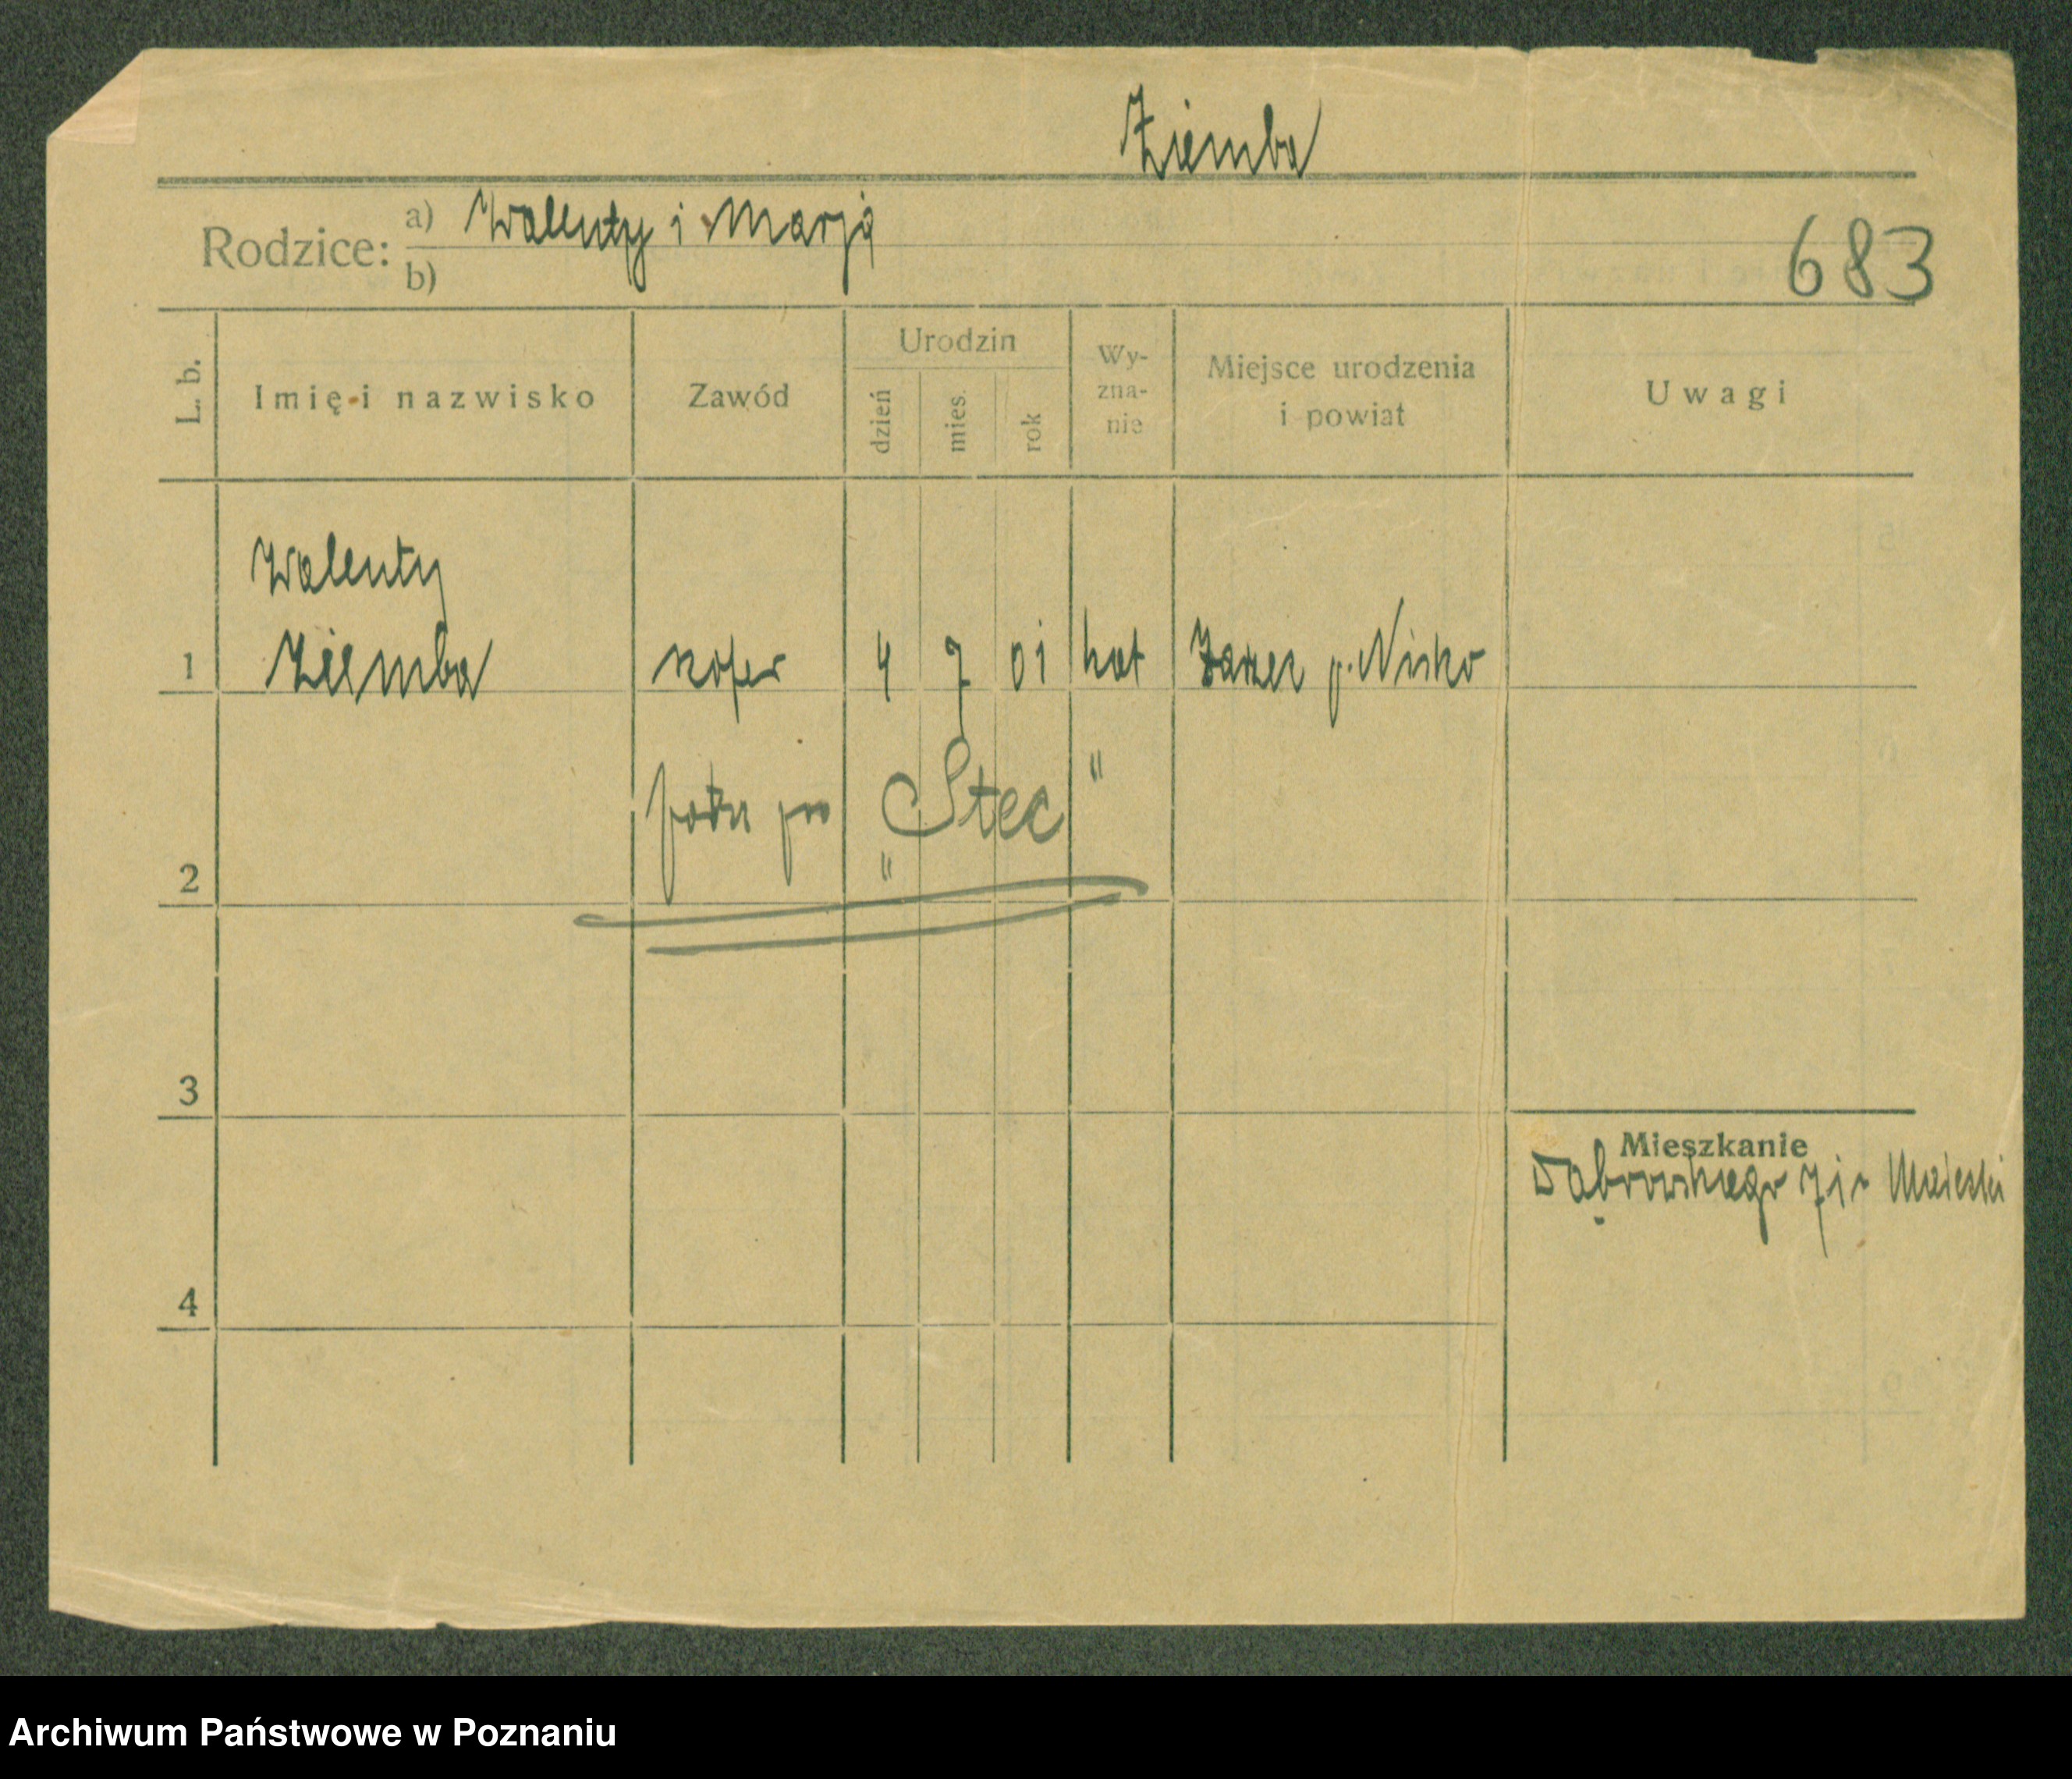 Ziemba
Rodzice: a) Walenty i Marja
b)
683
L. b.
Imię i nazwisko
Zawód
Urodzin
dzień
mies.
rok
Wy-
zna-
nie
Miejsce urodzenia
i powiat
Uwagi
Walenty
1 Ziemba szofer 4 7 01 kat Zarzec p. Nisko
"Stec"
2
3
Mieszkanie
Dąbrowskiego
4
Archiwum Państwowe w Poznaniu